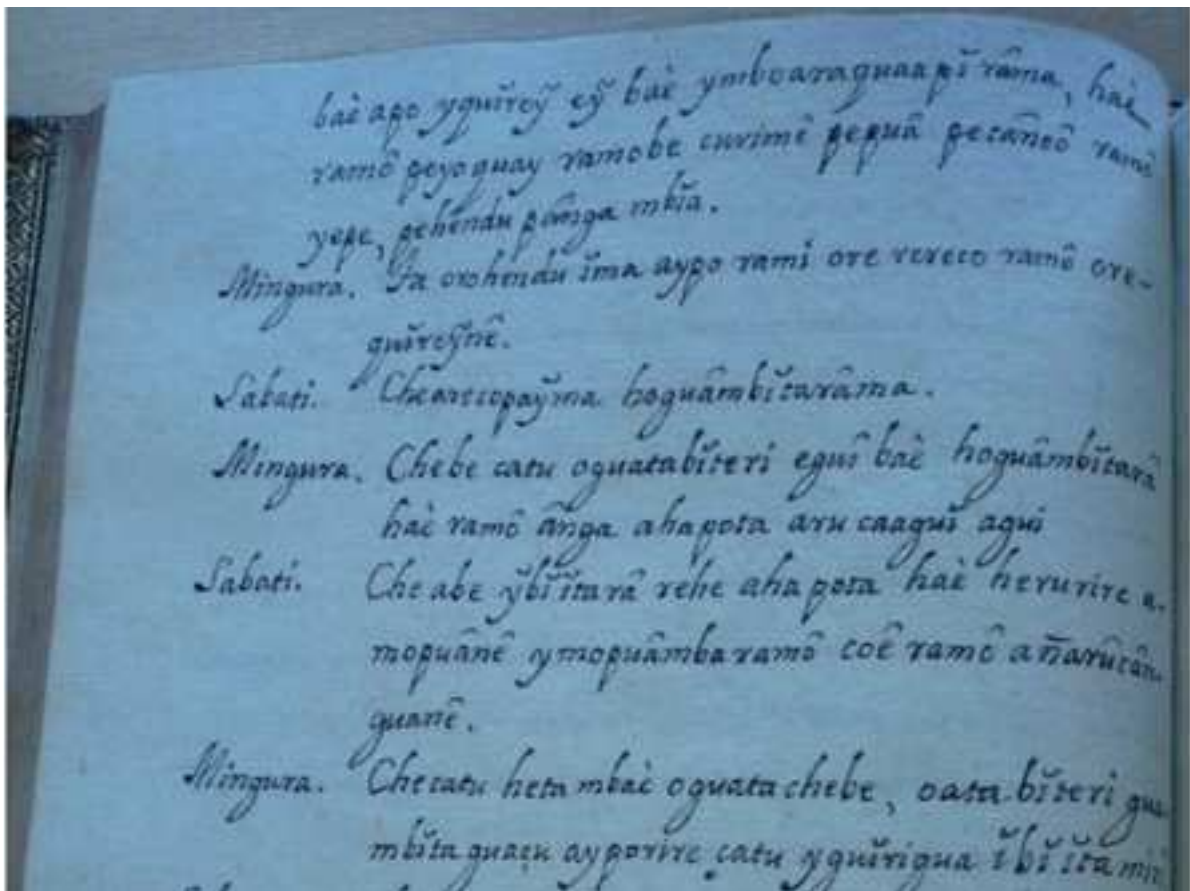 baè apo yquĭreỹ eỹ baè ymboaraguaapĭ râma, haè
ramô peyoquay ramobe curimê pepuâ pecâneô ramô
yepe, pehendu pânga mbĭa.
Mingura. Ta orohendu ĭma aypo rami ore rereco ramô ore-
quĭreỹnê.
Sabati. Chearecopaỹma hoguâmbĭtarâma.
Mingura. Chebe catu oguatabĭteri eguî baè hoguâmbĭtarâ
haè ramô ânga ahapota aru caaguĭ agui
Sabati. Che abe ỹbĭĭtarâ rehe aha pota haè herurire a-
mopuânê ymopuâmbaramô coê ramô añarucân-
guanê.
Mingura. Checatu heta mbaè oguatachebe, oata bĭteri gua
mbĭtaguaçu ayporire catu yquĭrigua ĭbĭĭta miri